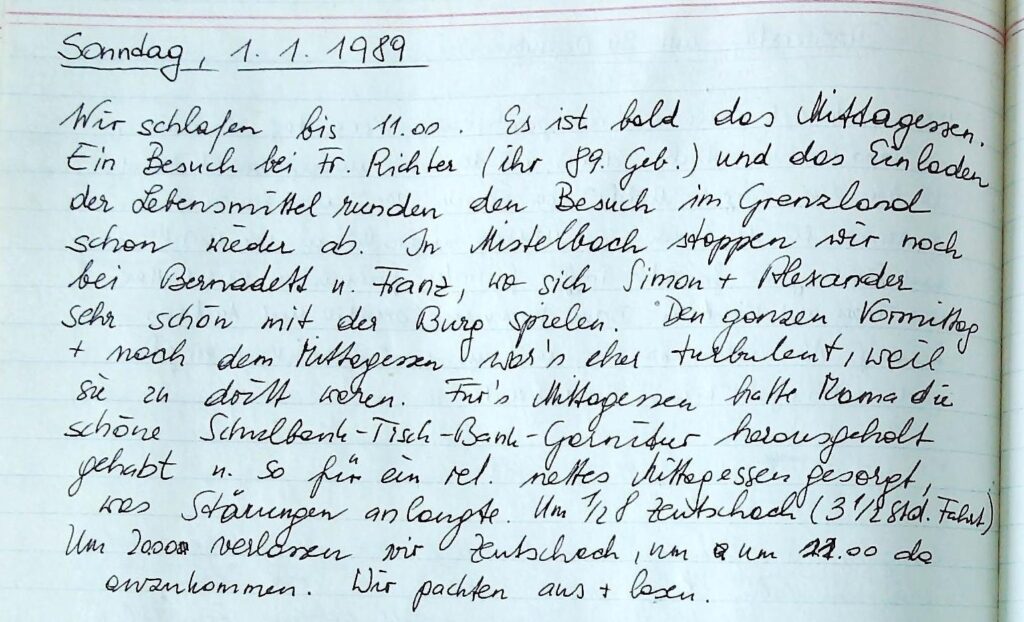 Sonndag, 1. 1. 1989
Wir schlafen bis 11.00. Es ist bald das Mittagessen.
Ein Besuch bei Fr. Richter (ihr 89. Geb.) und das Einladen
der Lebensmittel runden den Besuch im Grenzland
schon wieder ab. In Mistelbach stoppen wir noch
bei Bernadett u. Franz, wo sich Simon + Alexander
sehr schön mit der Burg spielen. Den ganzen Vormittag
+ nach dem Mittagessen war's eher turbulent, weil
sie zu dritt waren. Für's Mittagessen hatte Mama die
schöne Schulbank-Tisch-Bank-Garnitur herausgeholt
gehabt u. so für ein rel. nettes Mittagessen gesorgt,
was Störungen anlangte. Um 1/2 8 Zeutschach (3 1/2 Std. Fahrt)
Um 2000 verlassen wir Zeutschach, um um 22.00 da
anzukommen. Wir packten aus + lasen.